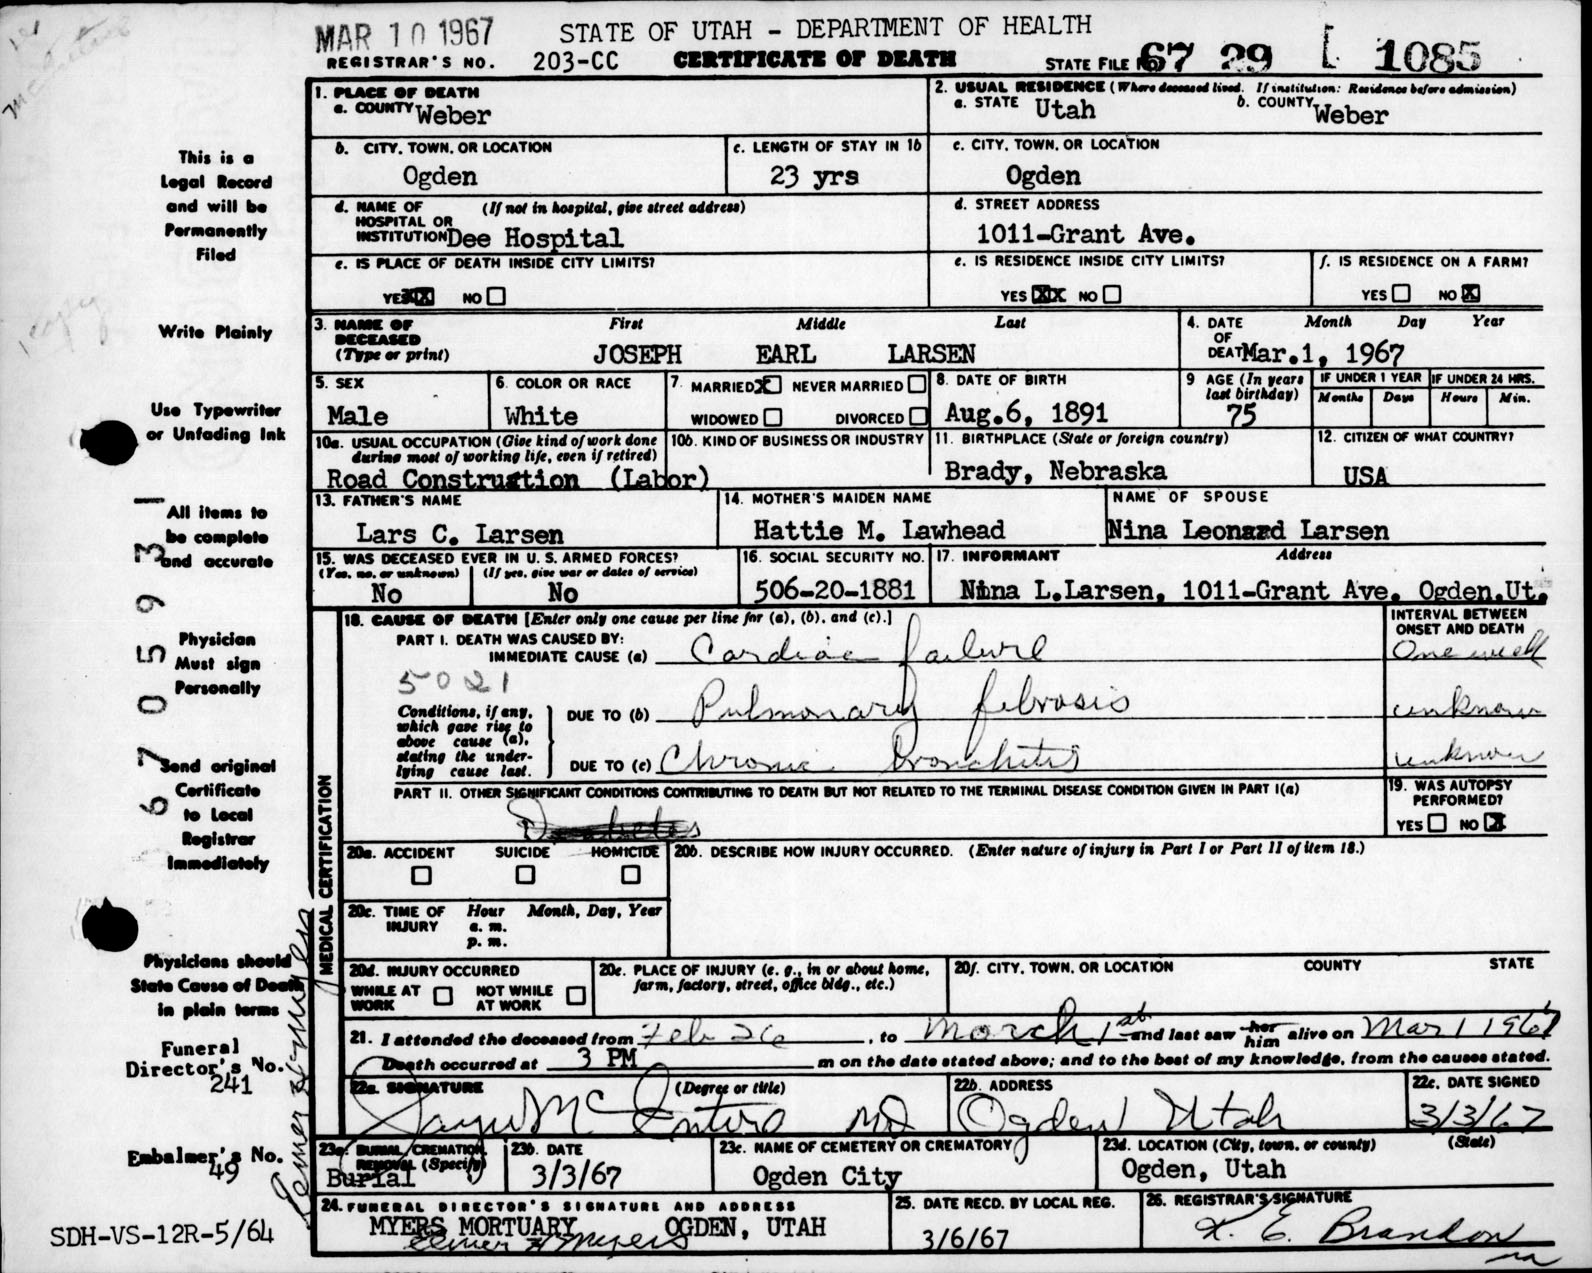 MAR 10 1967
STATE OF UTAH - DEPARTMENT OF HEALTH
REGISTRAR'S NO. 203-CC CERTIFICATE OF DEATH STATE FILE 67 29 1085
1. PLACE OF DEATH
a. COUNTY Weber
2. USUAL RESIDENCE (Where deceased lived. If institution: Residence before admission)
a. STATE Utah b. COUNTY Weber
b. CITY, TOWN, OR LOCATION
Ogden
c. LENGTH OF STAY IN 1b
23 yrs
c. CITY, TOWN, OR LOCATION
Ogden
d. NAME OF (If not in hospital, give street address)
HOSPITAL OR
INSTITUTION Dee Hospital
d. STREET ADDRESS
1011-Grant Ave.
e. IS PLACE OF DEATH INSIDE CITY LIMITS?
YES XX NO
e. IS RESIDENCE INSIDE CITY LIMITS?
YES XX NO
f. IS RESIDENCE ON A FARM?
YES NO X
3. NAME OF DECEASED (Type or print)
First Middle Last
JOSEPH EARL LARSEN
4. DATE OF DEATH Month Day Year
Mar.1, 1967
5. SEX
Male
6. COLOR OR RACE
White
7. MARRIED X NEVER MARRIED
WIDOWED DIVORCED
8. DATE OF BIRTH
Aug.6, 1891
9 AGE (In years last birthday)
75
IF UNDER 1 YEAR
Months Days
IF UNDER 24 HRS.
Hours Min.
10a. USUAL OCCUPATION (Give kind of work done
during most of working life, even if retired)
Road Construction (Labor)
10b. KIND OF BUSINESS OR INDUSTRY
11. BIRTHPLACE (State or foreign country)
Brady, Nebraska
12. CITIZEN OF WHAT COUNTRY?
USA
13. FATHER'S NAME
Lars C. Larsen
14. MOTHER'S MAIDEN NAME
Hattie M. Lawhead
NAME OF SPOUSE
Nina Leonard Larsen
15. WAS DECEASED EVER IN U. S. ARMED FORCES?
(Yes, no, or unknown) (If yes, give war or dates of service)
No No
16. SOCIAL SECURITY NO.
506-20-1881
17. INFORMANT Address
Nina L.Larsen, 1011-Grant Ave. Ogden,Ut.
MEDICAL CERTIFICATION
18. CAUSE OF DEATH [Enter only one cause per line for (a), (b), and (c).]
INTERVAL BETWEEN
ONSET AND DEATH
PART I. DEATH WAS CAUSED BY:
IMMEDIATE CAUSE (a) Cardiac failure One week
5021
Conditions, if any,
which gave rise to
above cause (a),
stating the under-
lying cause last.
DUE TO (b) Pulmonary fibrosis unknown
DUE TO (c) Chronic bronchitis unknown
PART II. OTHER SIGNIFICANT CONDITIONS CONTRIBUTING TO DEATH BUT NOT RELATED TO THE TERMINAL DISEASE CONDITION GIVEN IN PART I(a)
Diabetes
19. WAS AUTOPSY
PERFORMED?
YES NO X
20a. ACCIDENT SUICIDE HOMICIDE
20b. DESCRIBE HOW INJURY OCCURRED. (Enter nature of injury in Part I or Part II of item 18.)
20c. TIME OF INJURY Hour Month, Day, Year
a. m.
p. m.
20d. INJURY OCCURRED
WHILE AT WORK NOT WHILE AT WORK
20e. PLACE OF INJURY (e. g., in or about home,
farm, factory, street, office bldg., etc.)
20f. CITY, TOWN, OR LOCATION COUNTY STATE
21. I attended the deceased from Feb 26, to March 1st and last saw her him alive on Mar 1 1967
Death occurred at 3 PM m on the date stated above; and to the best of my knowledge, from the causes stated.
22a. SIGNATURE (Degree or title)
MD
22b. ADDRESS
Ogden Utah
22c. DATE SIGNED
3/3/67
23a. BURIAL, CREMATION,
REMOVAL (Specify)
Burial
23b. DATE
3/3/67
23c. NAME OF CEMETERY OR CREMATORY
Ogden City
23d. LOCATION (City, town, or county) (State)
Ogden, Utah
24. FUNERAL DIRECTOR'S SIGNATURE AND ADDRESS
MYERS MORTUARY OGDEN, UTAH
Elmer H Myers
25. DATE RECD. BY LOCAL REG.
3/6/67
26. REGISTRAR'S SIGNATURE
K. E. Brandon
This is a
Legal Record
and will be
Permanently
Filed
Write Plainly
Use Typewriter
or Unfading Ink
All items to
be complete
and accurate
Physician
Must sign
Personally
Send original
Certificate
to Local
Registrar
Immediately
Physicians should
State Cause of Death
in plain terms
Funeral
Director's No.
241
Embalmer's No.
49
SDH-VS-12R-5/64
Elmer H Myers